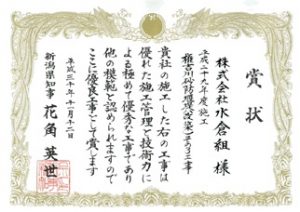 賞状
株式会社水倉組 様
平成二十九年度施工
貴社の施工した右の工事は
優れた施工管理と技術力に
よる極めて優秀な工事であり
他の模範と認められますので
ここに優良工事として賞します
平成三十年十一月十二日
新潟県知事 花角英世